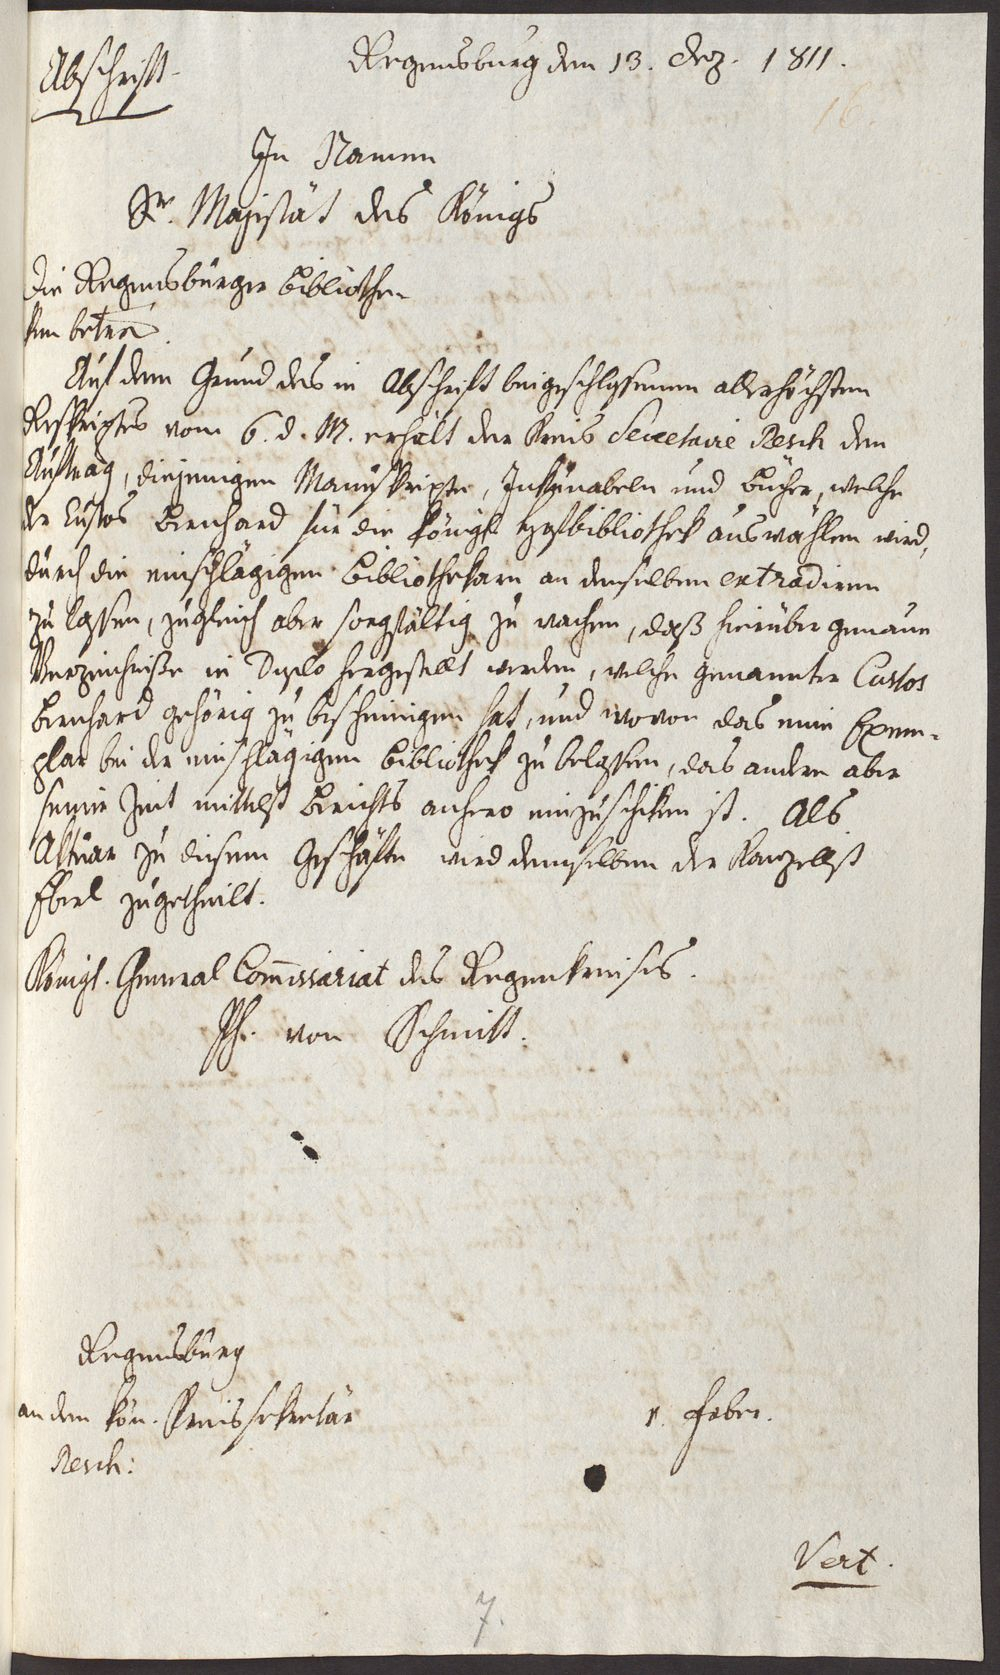 Abschrift
Regensburg den 13. Dez. 1811.
16.
In Namen
Sr. Majestät des Königs
Die Regensburger Bibliothe-
ken betr.
Auf dem Grund des in Abschrift beigeschlossenen allerhöchsten
Reskriptes vom 6. d. M. erhält der Kreis Secretaire Resch den
Auftrag, diejenigen Manuskripte, Inkunabeln und Bücher, welche
der Custos Bernhard für die königl. Hofbibliothek auswählen wird,
durch die einschlägigen Bibliothekarn an denselben extradiren
zu lassen, zugleich aber sorgfältig zu wachen, daß hierüber genaue
Verzeichniße in Duplo hergestellt werden, welche genannter Custos
Bernhard gehörig zu bescheinigen hat, und wovon das eine Exem-
plar bei der einschlägigen Bibliothek zu belassen, das andere aber
seiner Zeit mittelst Berichts anhero einzuschiken ist. Als
Aktuar zu diesem Geschäfte wird demselben der Kanzellist
Eberl zugetheilt.
Königl. General Commissariat des Regenkreises.
Ph. von Schmitt.
Regensburg
an den kön. Kreissekretär
Resch:
v. Faber.
Vert.
7.